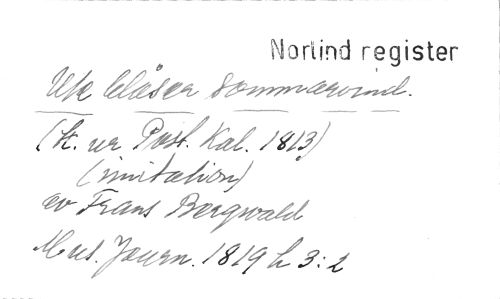 Norlind register
Ute blåser sommarvind.
(t. ur Poet. Kal. 1813)
(imitation)
av Frans Bergwald
Mus. Journ. 1819 h 3:2